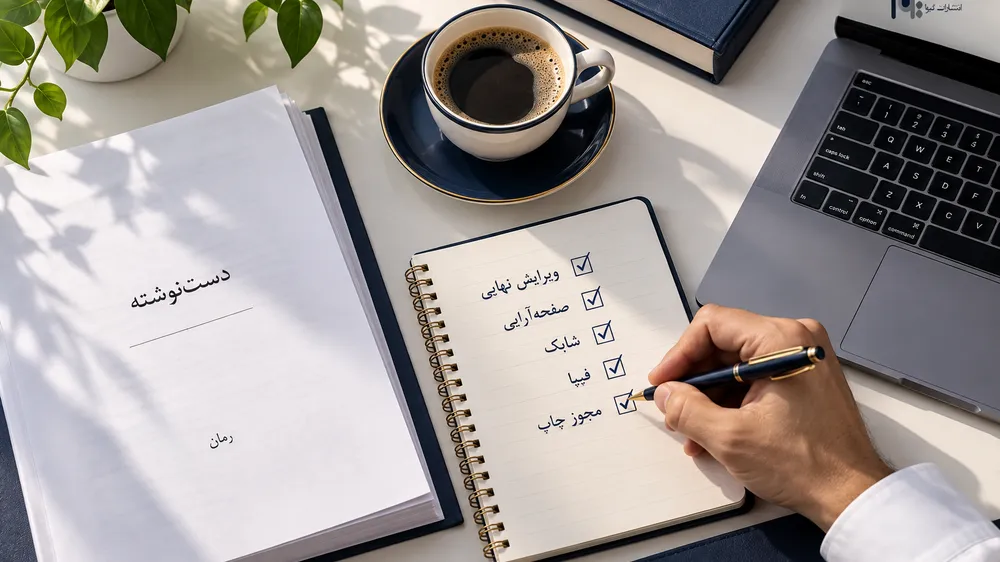 انتشارات گیوا
دست‌نوشته
رمان
ویرایش نهایی
صفحه‌آرایی
شابک
فیپا
مجوز چاپ
esc
tab
Q W E
caps lock
A S D F
shift
Z X C V
fn control option command